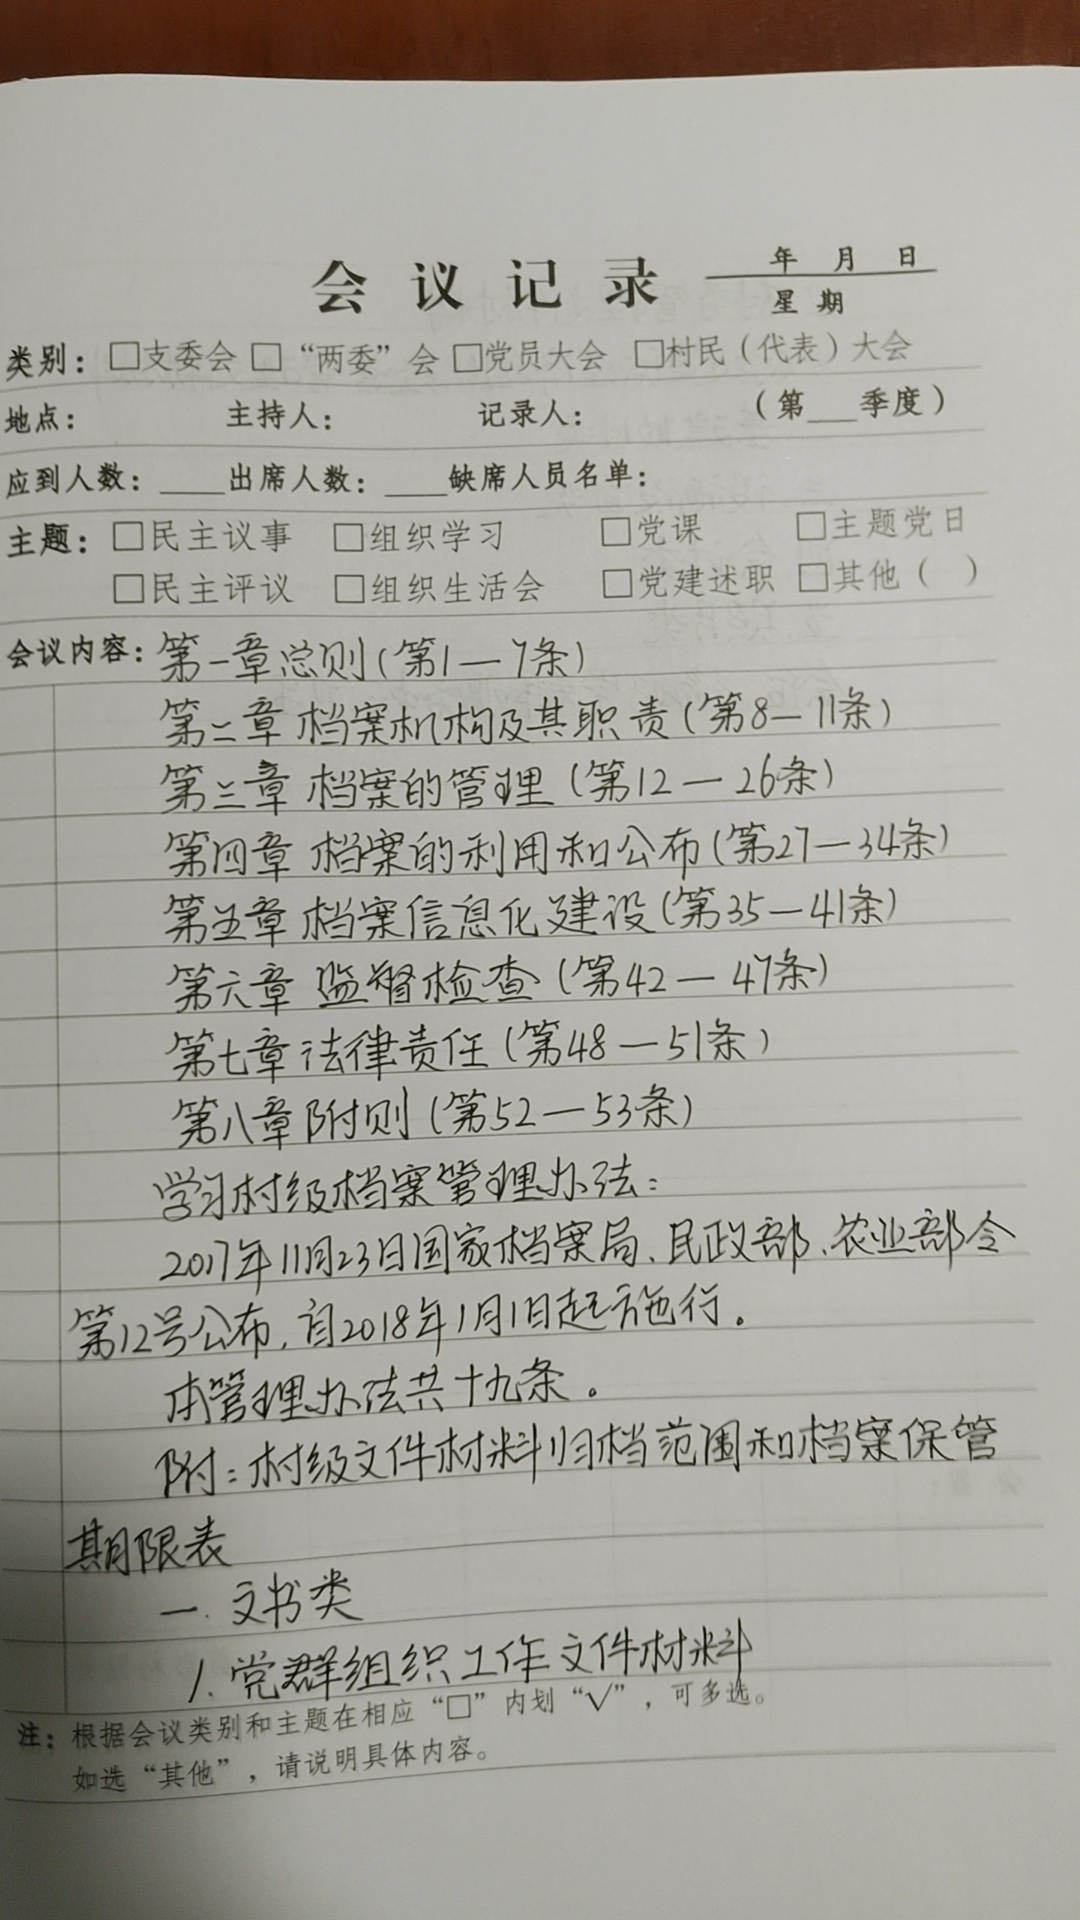 会议记录 年 月 日
星 期
类别：□支委会 □“两委”会 □党员大会 □村民（代表）大会
地点： 主持人： 记录人： （第___季度）
应到人数：____出席人数：____缺席人员名单：
主题：□民主议事 □组织学习 □党课 □主题党日
□民主评议 □组织生活会 □党建述职 □其他（ ）
会议内容：第一章总则(第1—7条)
第二章 档案机构及其职责(第8—11条)
第三章 档案的管理(第12—26条)
第四章 档案的利用和公布(第27—34条)
第五章 档案信息化建设(第35—41条)
第六章 监督检查(第42—47条)
第七章 法律责任(第48—51条)
第八章 附则(第52—53条)
学习村级档案管理办法：
2017年11月23日国家档案局、民政部、农业部令
第12号公布，自2018年1月1日起施行。
本管理办法共十九条。
附：村级文件材料归档范围和档案保管
期限表
一、文书类
1. 党群组织工作文件材料
注：根据会议类别和主题在相应“□”内划“√”，可多选。
如选“其他”，请说明具体内容。